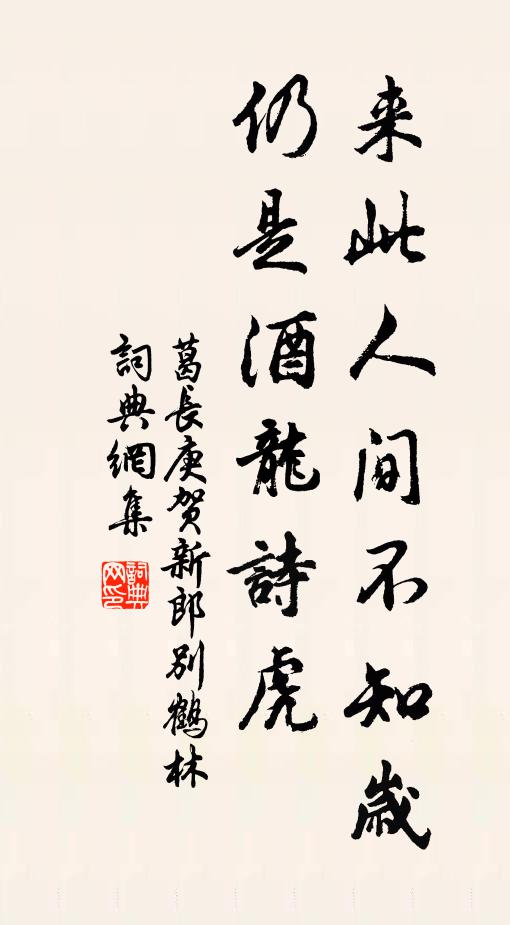 来此人间不知歲
仍是酒龍詩虎
葛長庚贺新郎别鶴林
詞典網集
詞典网印